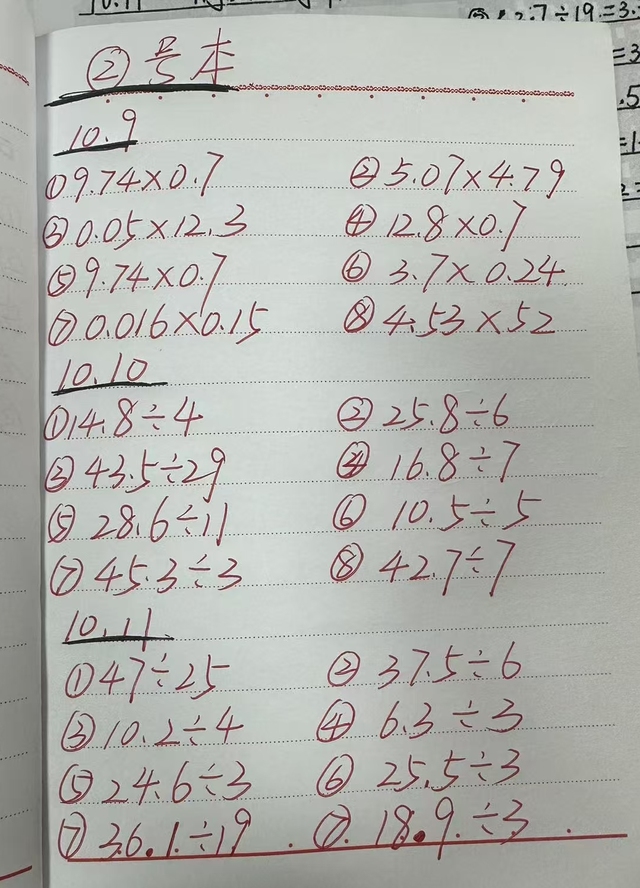 ②号本
10.9
①9.74×0.7 ②5.07×4.79
③0.05×12.3 ④12.8×0.7
⑤9.74×0.7 ⑥3.7×0.24
⑦0.016×0.15 ⑧4.53×52
10.10
①14.8÷4 ②25.8÷6
③43.5÷29 ④16.8÷7
⑤28.6÷11 ⑥10.5÷5
⑦45.3÷3 ⑧42.7÷7
10.11
①47÷25 ②37.5÷6
③10.2÷4 ④6.3÷3
⑤24.6÷3 ⑥25.5÷3
⑦36.1÷19 ⑦18.9÷3